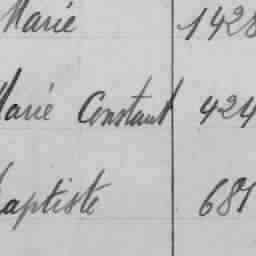 Marie 1428
Marie Constant 424
Baptiste 687